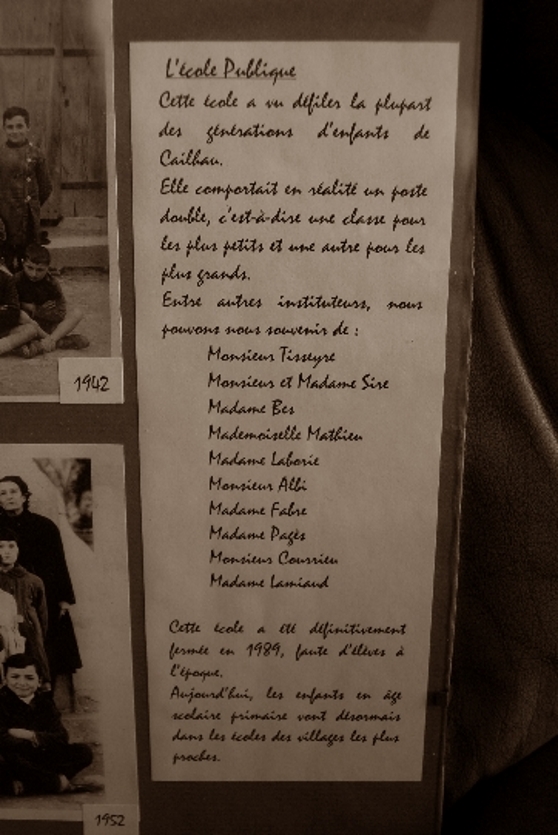 L'école Publique
Cette école a vu défiler la plupart
des générations d'enfants de
Cailhau.
Elle comportait en réalité un poste
double, c'est-à-dire une classe pour
les plus petits et une autre pour les
plus grands.
Entre autres instituteurs, nous
pouvons nous souvenir de :
Monsieur Tisseyre
Monsieur et Madame Sire
Madame Bes
Mademoiselle Mathieu
Madame Laborie
Monsieur Albi
Madame Fabre
Madame Pagès
Monsieur Courrieu
Madame Lamiaud
Cette école a été définitivement
fermée en 1989, faute d'élèves à
l'époque.
Aujourd'hui, les enfants en âge
scolaire primaire vont désormais
dans les écoles des villages les plus
proches.
1942
1952